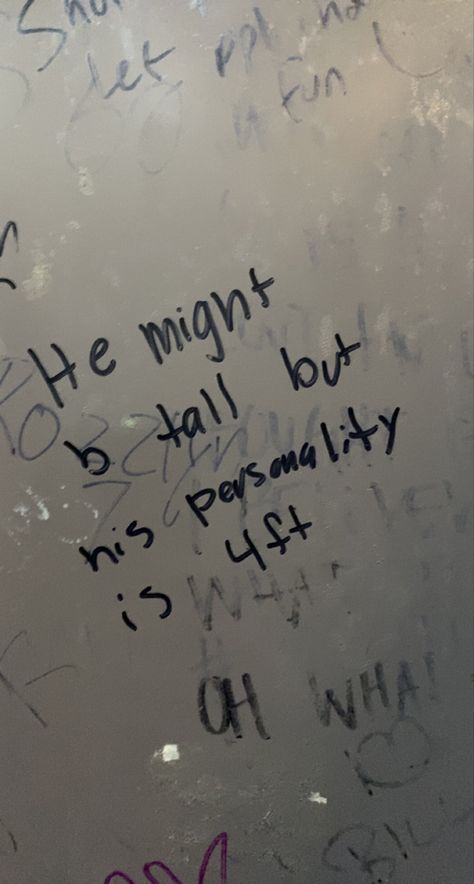 let ppl
fun
He might
b tall but
his personality
is 4ft
WHAT
OH WHA!